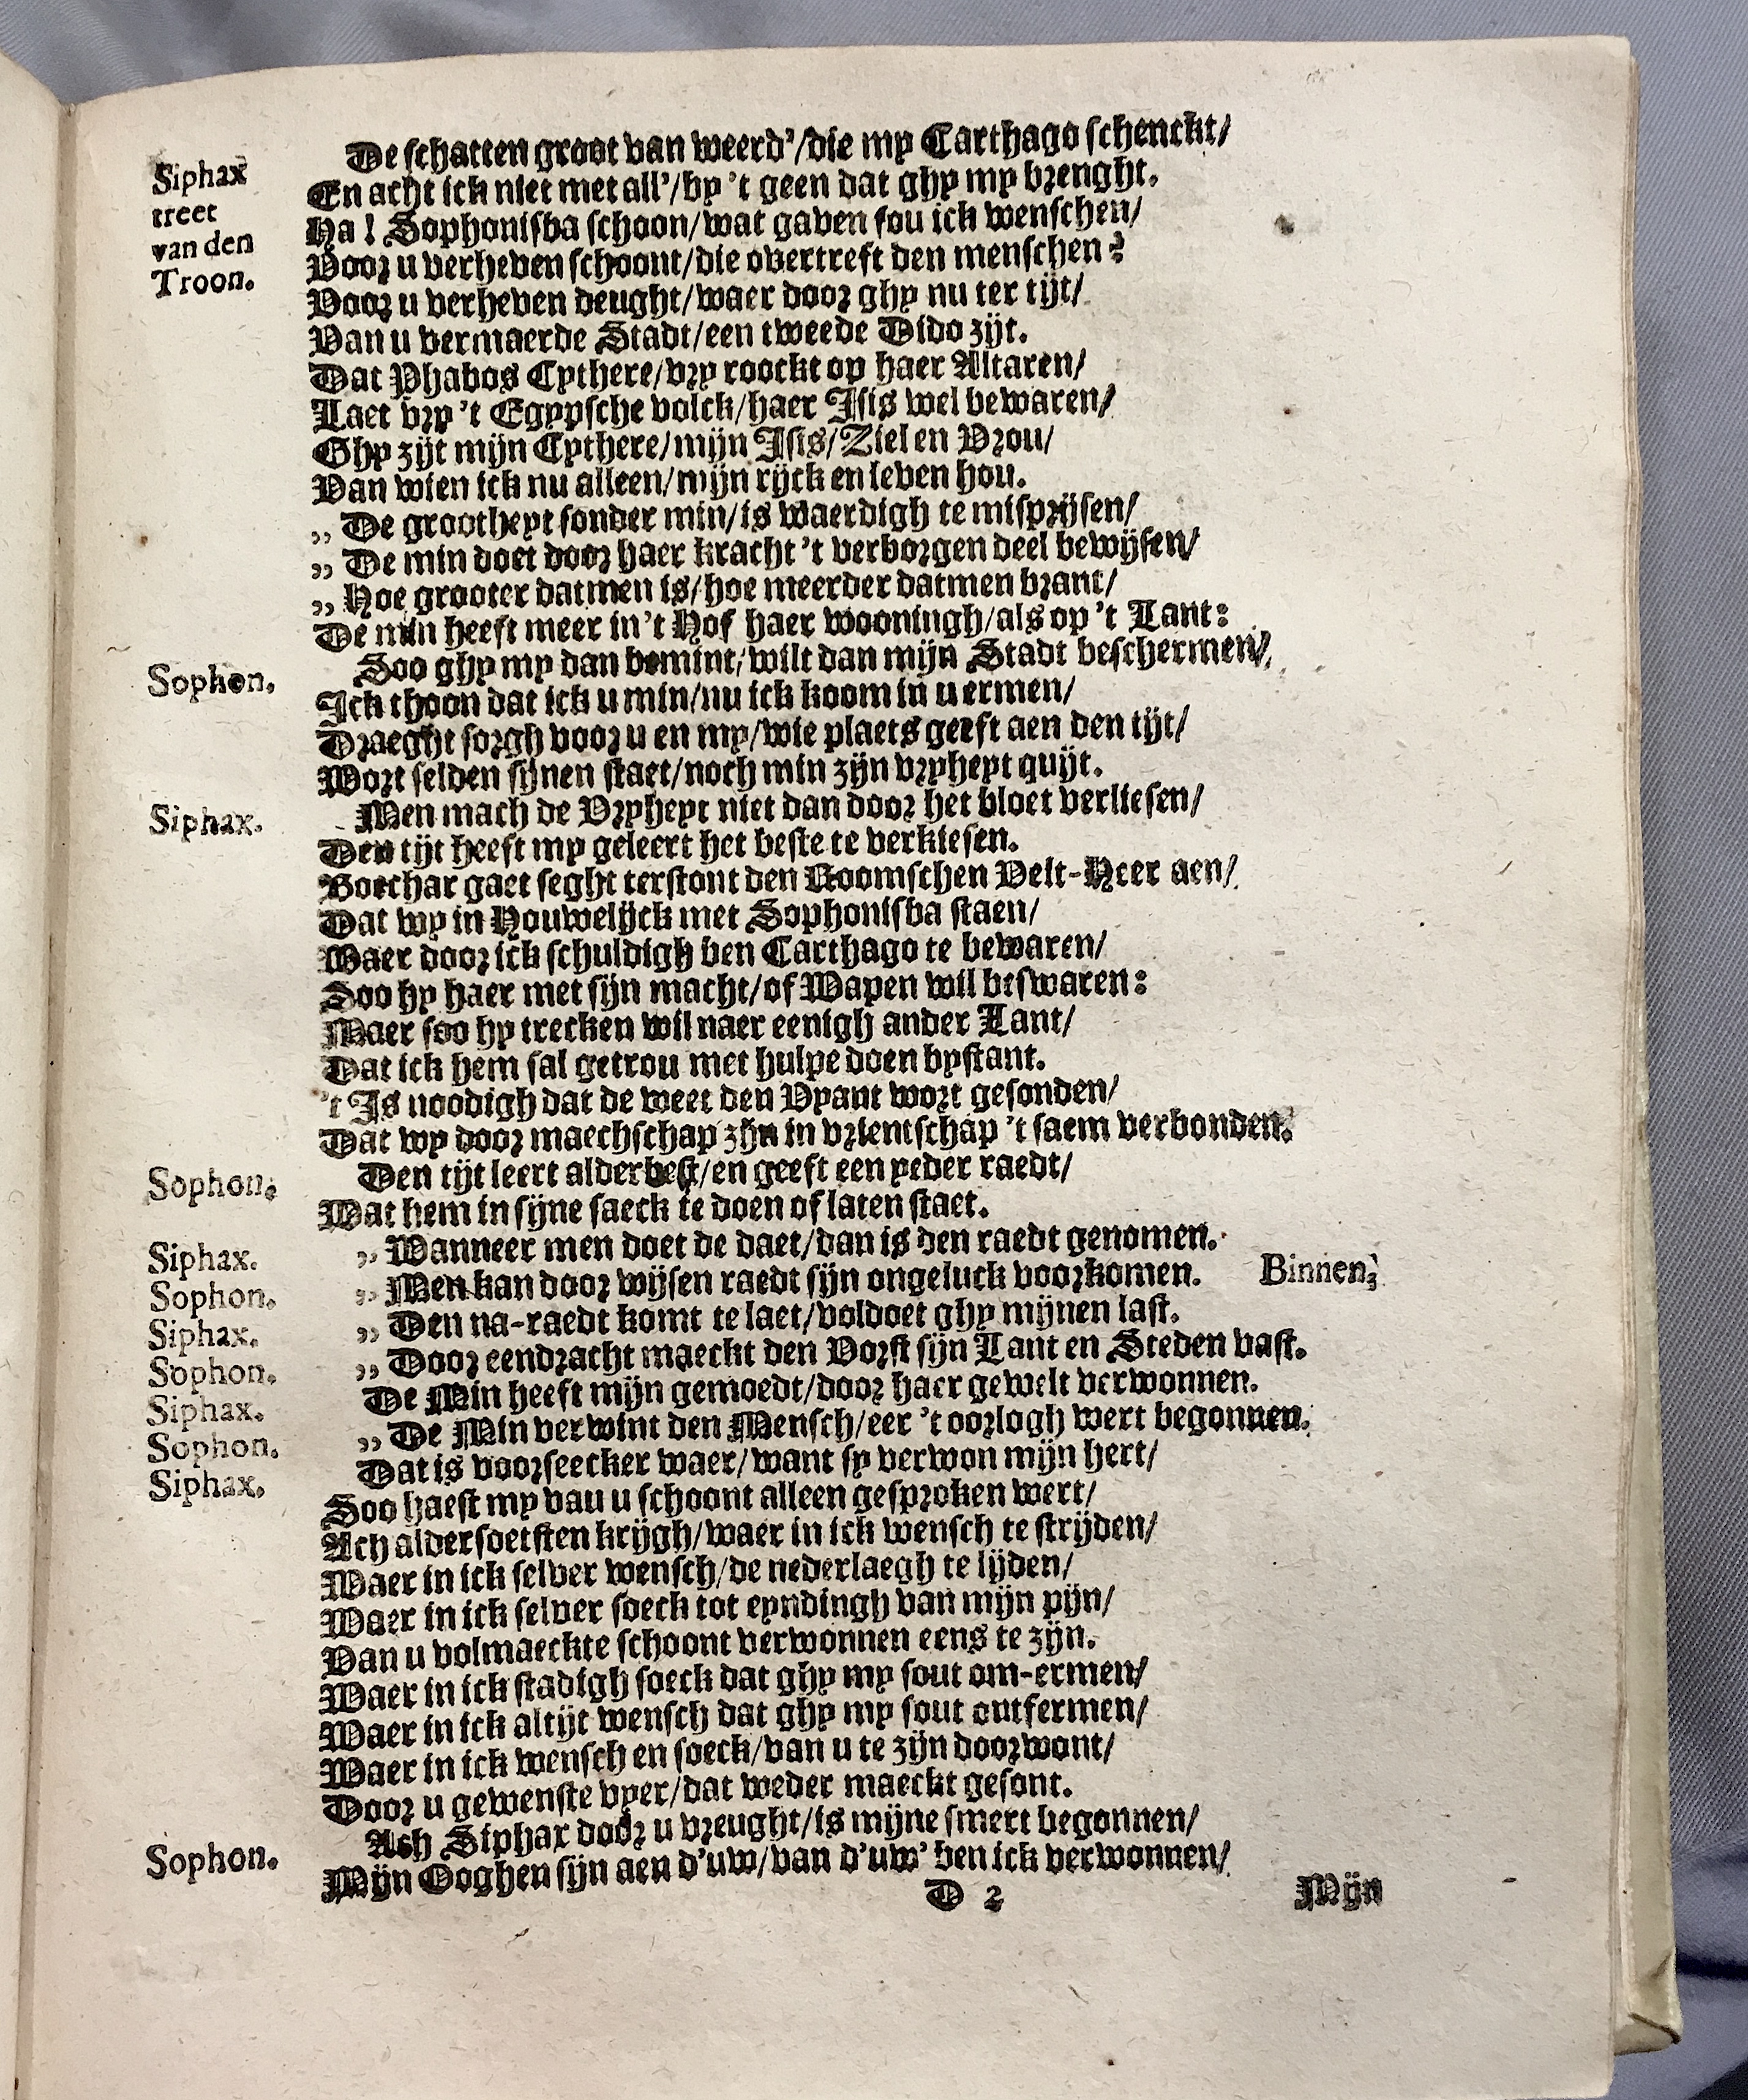 De schatten groot van weerd'/die my Carthago schenckt/
Siphax En acht ick niet met all'/by 't geen dat ghy my brenght.
treet Ha! Sophonisba schoon/wat gaven sou ick wenschen/
van den Voor u verheven schoont/die overtreft den menschen?
Troon. Voor u verheven deught/waer door ghy nu ter tijt/
Van u vermaerde Stadt/een tweede Dido zijt.
Dat Phabos Cythere/vry roockt op haer Altaren/
Laet vry 't Egypsche volck/haer Isis wel bewaren/
Ghy zijt mijn Cythere/mijn Isis/Ziel en Vrou/
Van wien ick nu alleen/mijn rijck en leven hou.
„ De grootheyt sonder min/is waerdigh te misprijsen/
„ De min doet door haer kracht 't verborgen deel bewijsen/
„ Hoe grooter datmen is/hoe meerder datmen brant/
De min heeft meer in 't Hof haer wooningh/als op 't Lant:
Sophon. Soo ghy my dan bemint/wilt dan mijn Stadt beschermen/
Ick thoon dat ick u min/nu ick koom in u ermen/
Draeght sorgh voor u en my/wie plaets geeft aen den tijt/
Wort selden sijnen staet/noch min zijn vryheyt quijt.
Siphax. Men mach de Vryheyt niet dan door het bloet verliesen/
Den tijt heeft my geleert het beste te verkiesen.
Botchar gaet seght terstont den Roomschen Velt-Heer aen/
Dat wy in Houwelijck met Sophonisba staen/
Waer door ick schuldigh ben Carthago te bewaren/
Soo hy haer met sijn macht/of Wapen wil beswaren:
Maer soo hy trecken wil naer eenigh ander Lant/
Dat ick hem sal getrou met hulpe doen bystant.
't Is noodigh dat de weet den Vyant wort gesonden/
Dat wy door maechschap zijn in vrientschap 't saem verbonden.
Sophon. Den tijt leert alderbest/en geeft een yeder raedt/
Wat hem in sijne saeck te doen of laten staet.
Siphax. „ Wanneer men doet de daet/dan is den raedt genomen.
Sophon. „ Men kan door wijsen raedt sijn ongeluck voorkomen. Binnen.
Siphax. „ Den na-raedt komt te laet/voldoet ghy mijnen last.
Sophon. „ Door eendracht maeckt den Vorst sijn Lant en Steden vast.
Siphax. De Min heeft mijn gemoedt/door haer gewelt verwonnen.
Sophon. „ De Min verwint den Mensch/eer 't oorlogh wert begonnen.
Siphax. Dat is voorseecker waer/want sy verwon mijn hert/
Soo haest my vau u schoont alleen gesproken wert/
Ach aldersoetsten krijgh/waer in ick wensch te strijden/
Waer in ick selver wensch/de nederlaegh te lijden/
Waer in ick selver soeck tot eyndingh van mijn pijn/
Van u volmaeckte schoont verwonnen eens te zijn.
Waer in ick stadigh soeck dat ghy my sout om-ermen/
Waer in ick altijt wensch dat ghy my sout ontfermen/
Waer in ick wensch en soeck/van u te zijn doorwont/
Door u gewenste vyer/dat weder maeckt gesont.
Sophon. Ach Siphax door u vreught/is mijne smert begonnen/
Mijn Ooghen sijn aen d'uw/van d'uw' ben ick verwonnen/
D 2 Mijn